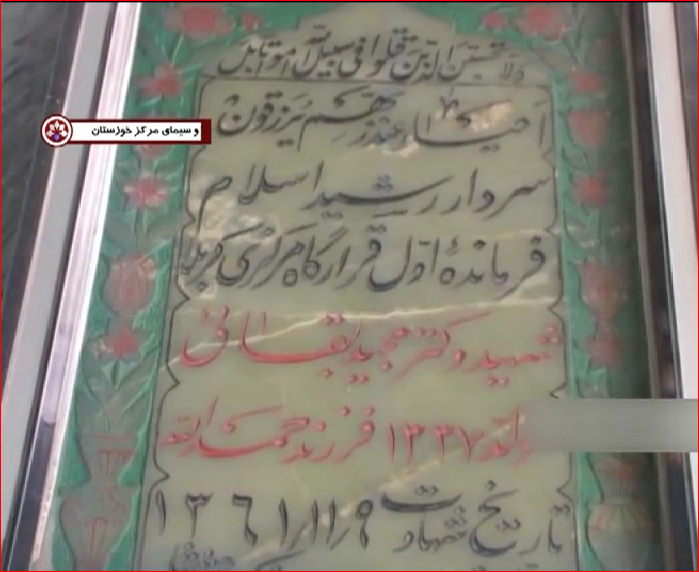 ولا تحسبن الذین قتلوا فی سبیل الله امواتا بل
احیاء عند ربهم یرزقون
و سیمای مرکز خوزستان
سردار رشید اسلام
فرماندهٔ اوّل قرارگاه مرکزی کربلا
شهید دکتر مجید بقائی
تولد ۱۳۳۷ فرزند حمدالله
تاریخ شهادت ۱۳۶۱/۱۱/۹